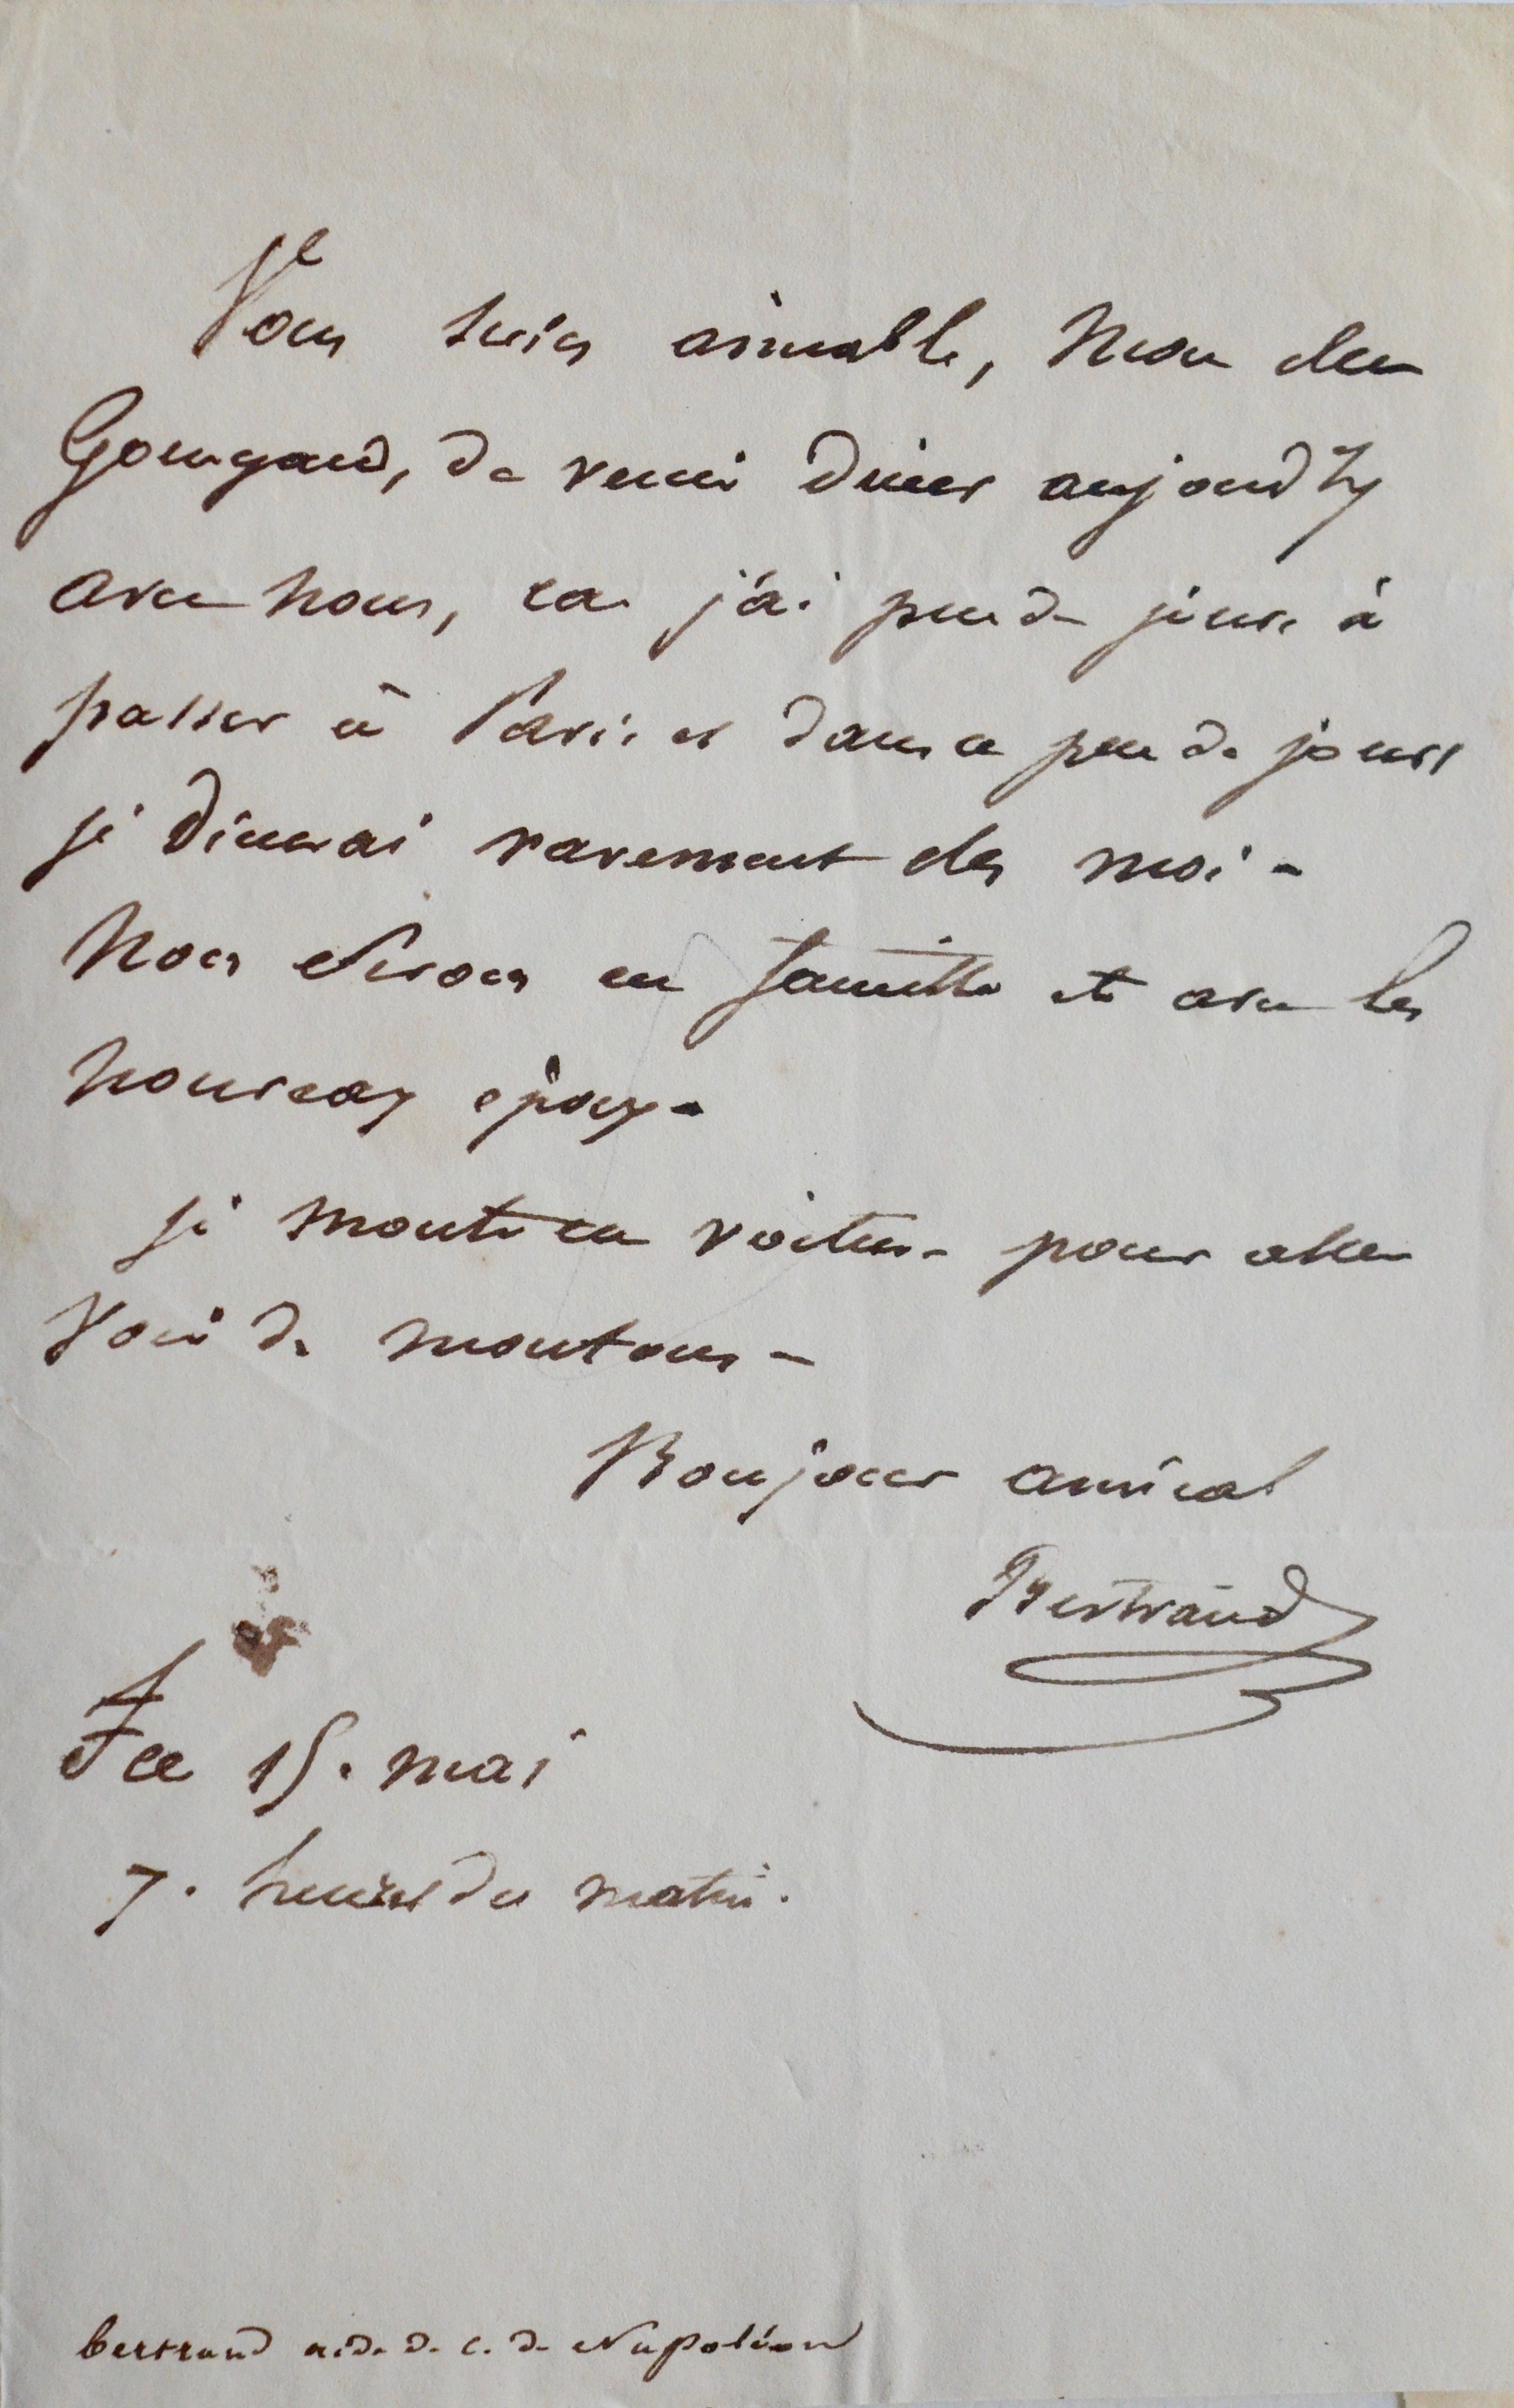 Vous seriez aimable, mon cher
Gourgaud, de venir diner aujourd'hy
avec nous, car j'ai peu de jours à
passer à Paris et dans ce peu de jours
je dinerai rarement chez moi -
Nous serons en famille et avec les
nouveaux epoux -
je monte en voiture pour aller
voir de
Bonjour amical
Bertrand
ce 15. mai
7. heures du matin.
bertrand aide d. c. de Napoléon